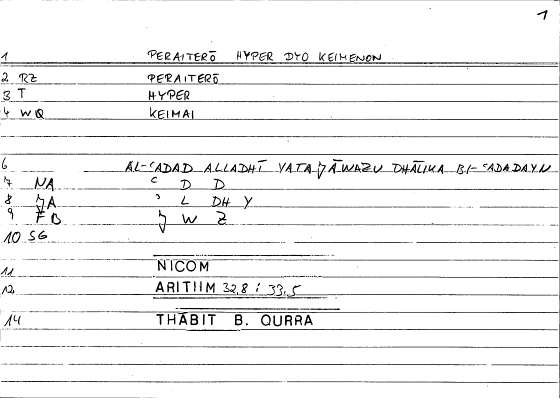 1
1 PERAITERŌ HYPER DYO KEIMENON
2 RZ PERAITERŌ
3 T HYPER
4 WQ KEIMAI
6 AL-ʿADAD ALLADHĪ YATAǦĀWAZU DHĀLIKA BI-ʿADADAYN
7 NA ʿ D D
8 ǦA ʾ L DH Y
9 FB Ǧ W Z
10 SG
11 NICOM
12 ARITIIM 32,8 ; 33,5
14 THĀBIT B. QURRA